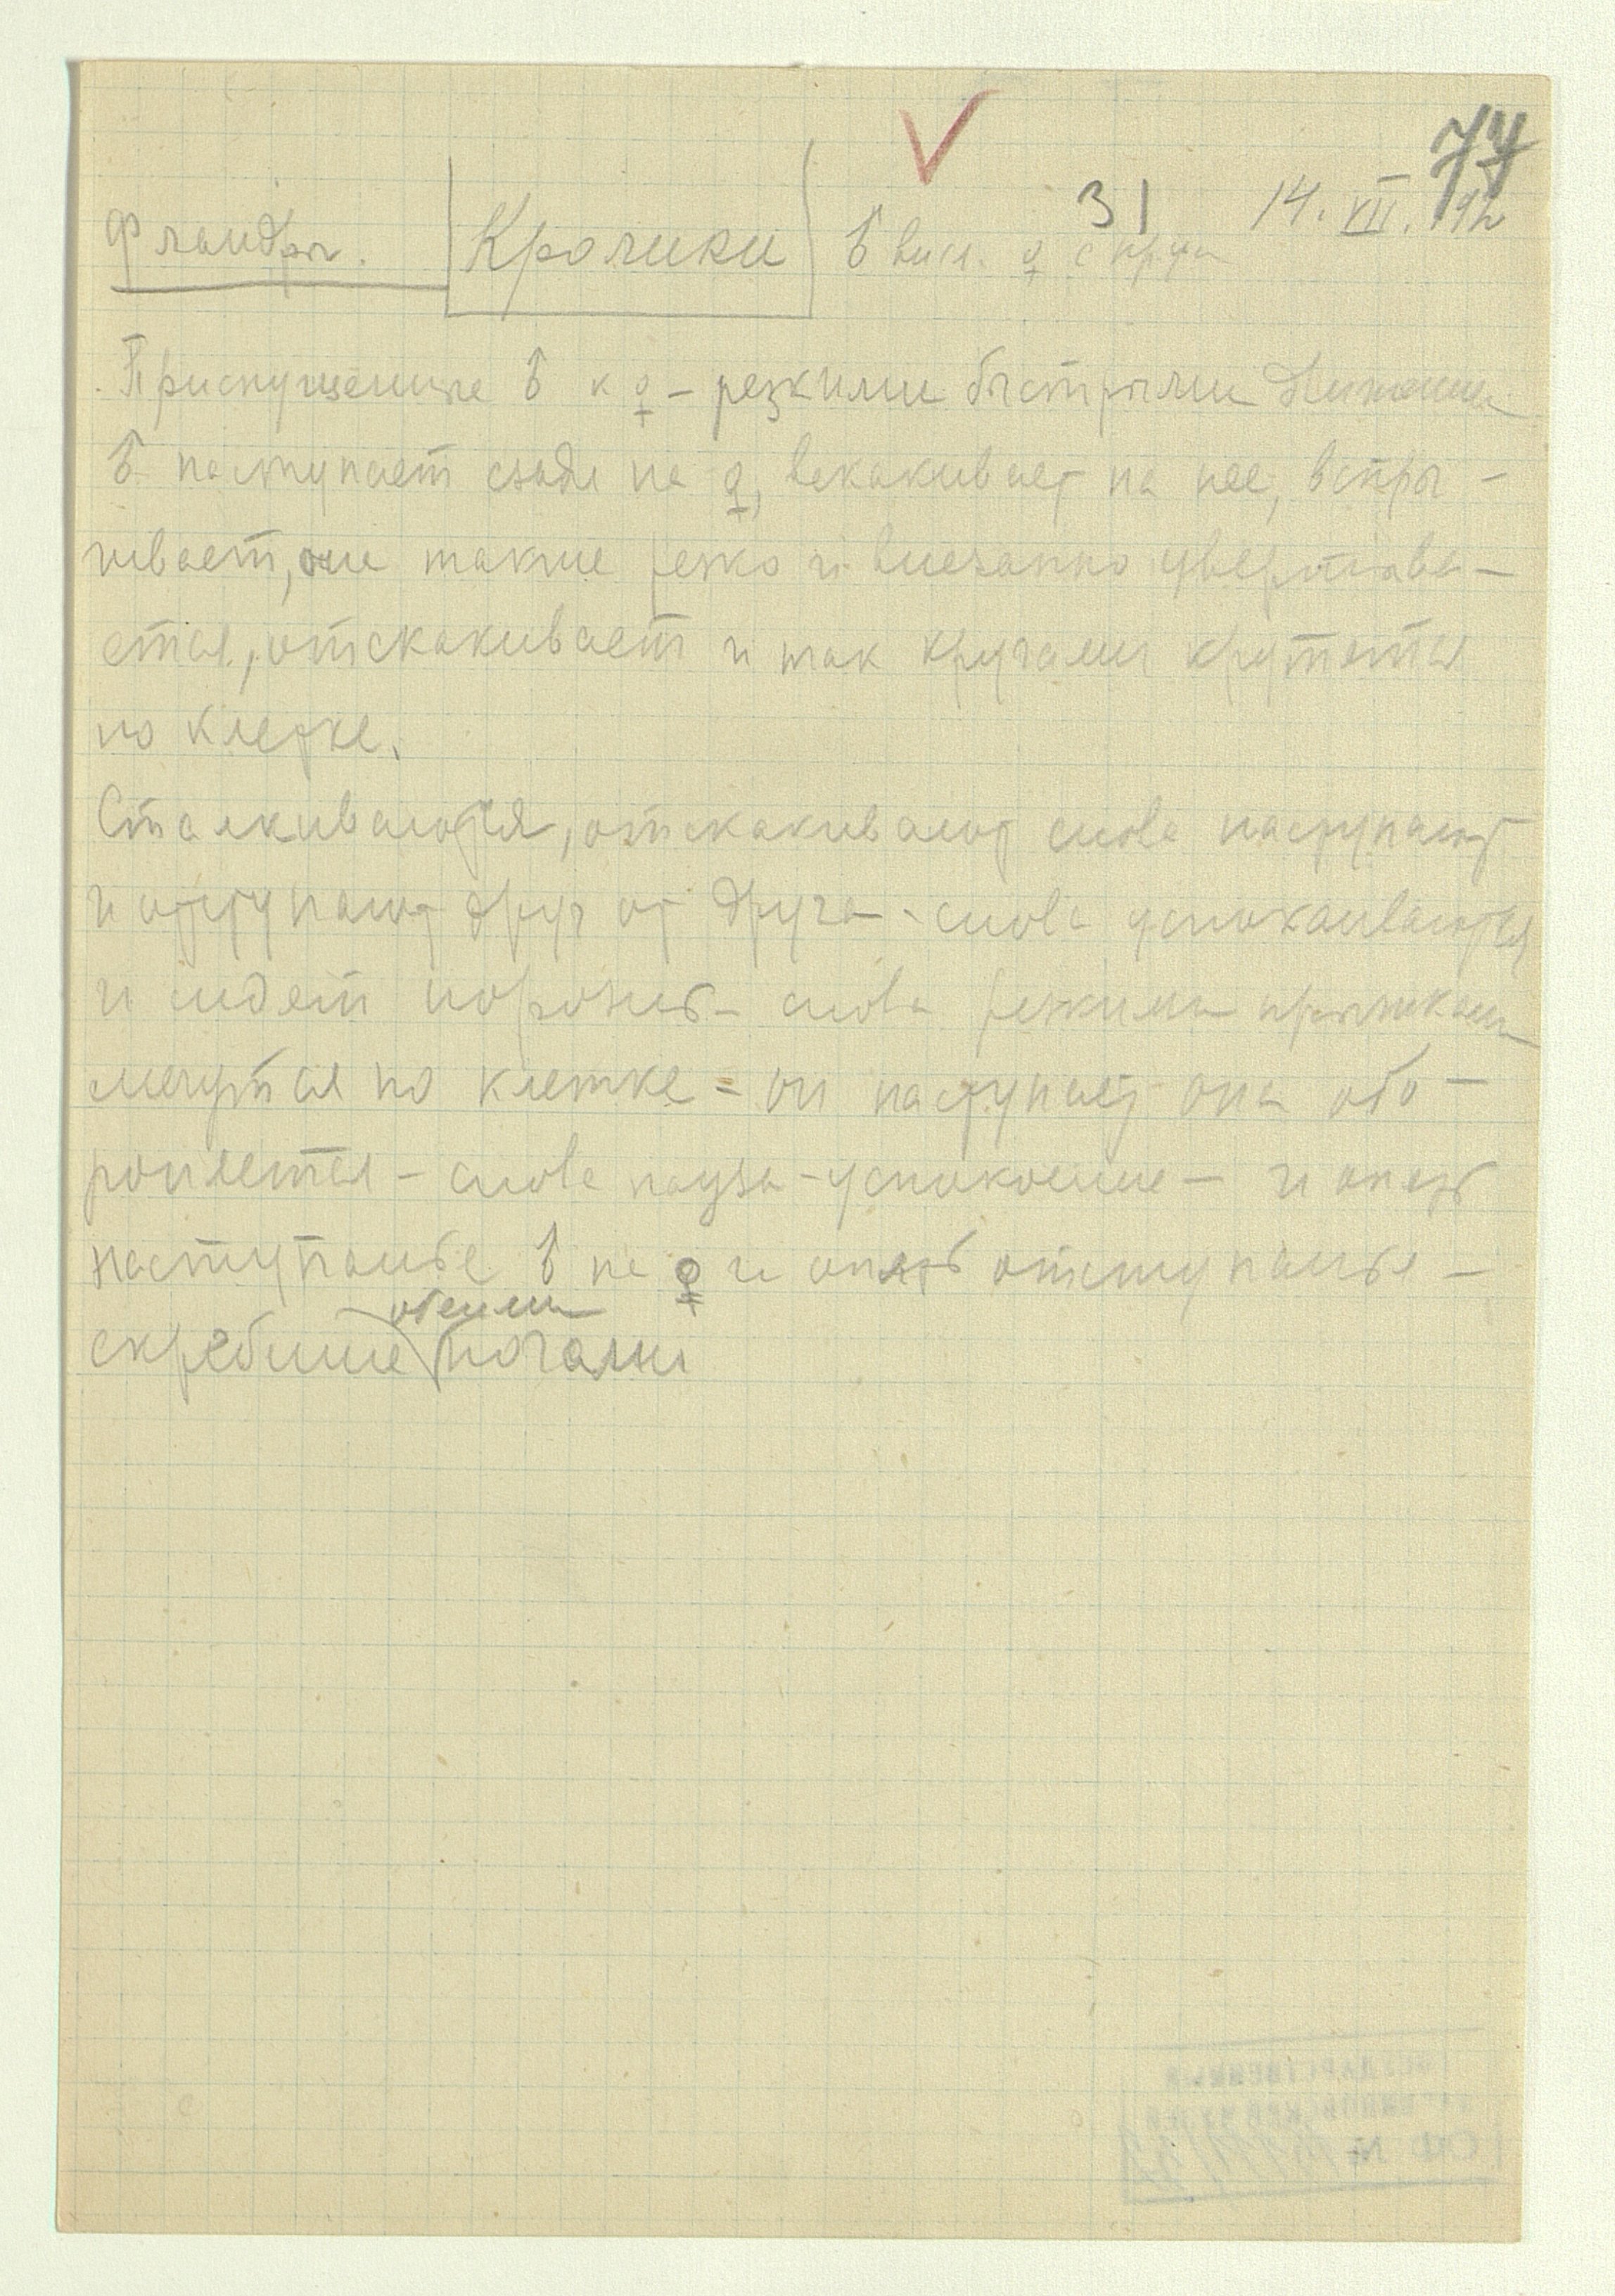 77
31 14. VII. 42
Фландры. Кролики ♂ висл. ♀ с
Приспущение ♂ к ♀ – резкими быстрыми движениями
♂ наступает сзади на ♀, вскакивает на нее, вспры-
гивает, она также резко и внезапно увертыва-
ется, отскакивает и так кругами крутятся
по клетке.
Сталкиваются, отскакивают снова наступают
и отступают друг от друга – снова успокаиваются
и сидят порознь – снова резкими прыжками
мечутся по клетке – он наступает она обо-
роняется – снова пауза – успокоение – и опять
наступанье ♂ на ♀ и опять отступанье –
обеими
скребание ногами